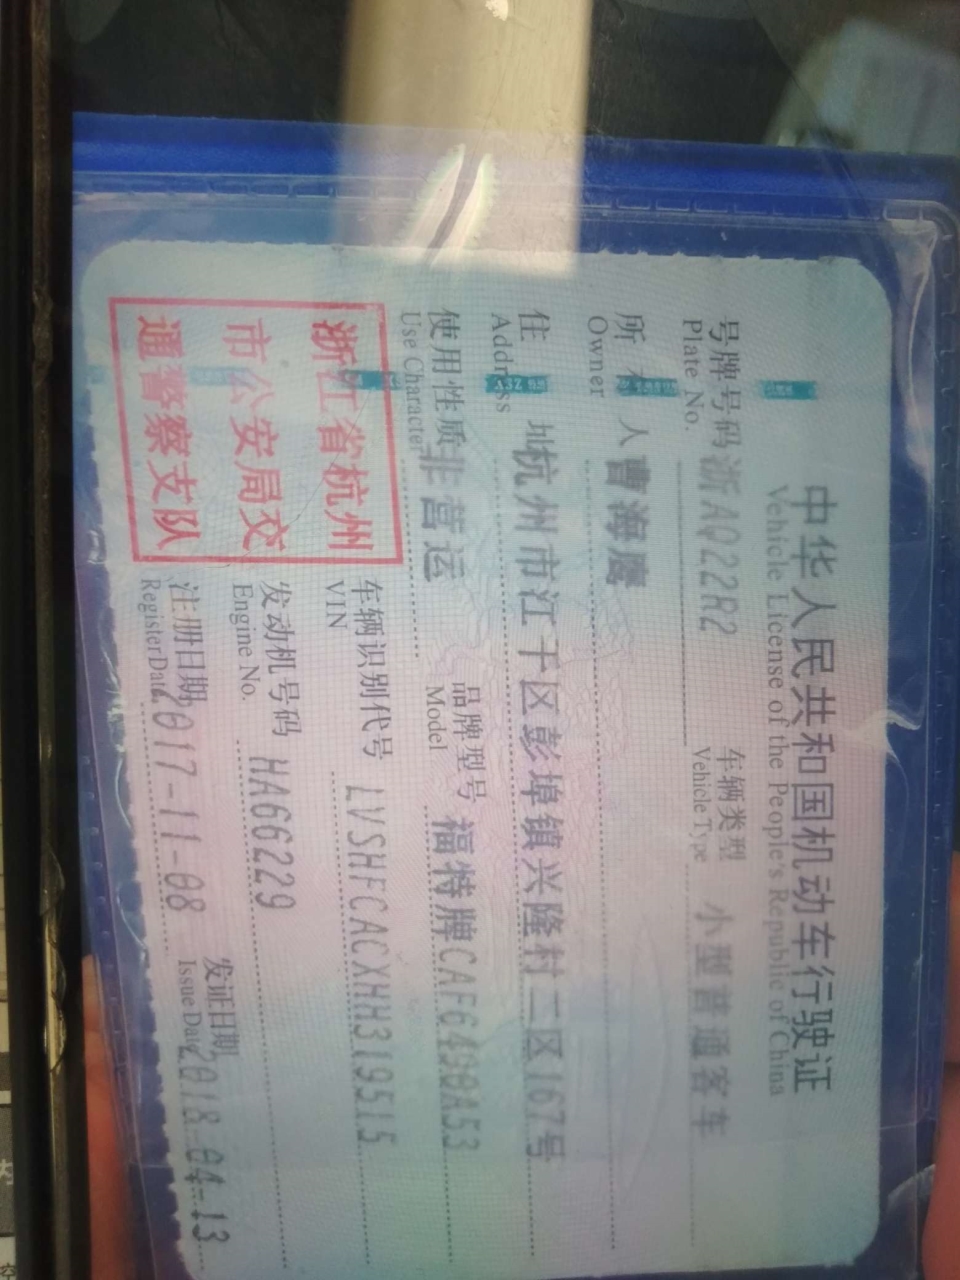 中华人民共和国机动车行驶证
Vehicle License of the People's Republic of China
号牌号码 浙AQ22R2 车辆类型 小型普通客车
Plate No. Vehicle Type
所有人 曹海鹰
Owner
住址 杭州市江干区彭埠镇兴隆村二区167号
Address
使用性质 非营运 品牌型号 福特牌CAF6490A53
Use Character Model
浙江省杭州
市公安局交
通警察支队
车辆识别代号 LVSHFCACXHH319515
VIN
发动机号码 HA66229
Engine No.
注册日期 2017-11-08 发证日期 2018-04-13
Register Date Issue Date